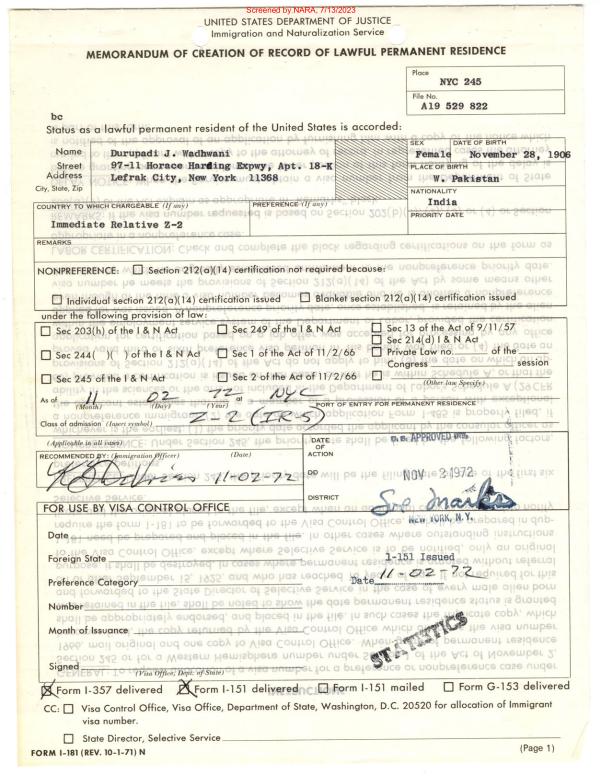 Screened by NARA, 7/13/2023
UNITED STATES DEPARTMENT OF JUSTICE
Immigration and Naturalization Service
MEMORANDUM OF CREATION OF RECORD OF LAWFUL PERMANENT RESIDENCE
Place
NYC 245
File No.
A19 529 822
bc
Status as a lawful permanent resident of the United States is accorded:
Name Durupadi J. Wadhwani
Street Address 97-11 Horace Harding Expwy, Apt. 18-K
City, State, Zip Lefrak City, New York 11368
SEX Female
DATE OF BIRTH November 28, 1906
PLACE OF BIRTH
W. Pakistan
NATIONALITY
India
COUNTRY TO WHICH CHARGEABLE (If any)
Immediate Relative Z-2
PREFERENCE (If any)
PRIORITY DATE
REMARKS
NONPREFERENCE: Section 212(a)(14) certification not required because:
Individual section 212(a)(14) certification issued Blanket section 212(a)(14) certification issued
under the following provision of law:
Sec 203(h) of the I & N Act Sec 249 of the I & N Act Sec 13 of the Act of 9/11/57
Sec 214(d) I & N Act
Sec 244( )( ) of the I & N Act Sec 1 of the Act of 11/2/66 Private Law no. of the
Congress session
Sec 245 of the I & N Act Sec 2 of the Act of 11/2/66
(Other law Specify)
As of 11 02 72 at NYC
(Month) (Day) (Year) PORT OF ENTRY FOR PERMANENT RESIDENCE
Class of admission (Insert symbol) Z-2 (IR-5)
(Applicable in all cases)
RECOMMENDED BY: (Immigration Officer) (Date)
11-02-72
DATE OF ACTION
APPROVED
NOV 2 1972
DD
DISTRICT Sol Marks
NEW YORK, N.Y.
FOR USE BY VISA CONTROL OFFICE
Date
Foreign State
Preference Category
Number
Month of Issuance
Signed
(Visa Office, Dept. of State)
1-151 Issued
Date 11-02-72
STATISTICS
Form I-357 delivered Form I-151 delivered Form I-151 mailed Form G-153 delivered
CC: Visa Control Office, Visa Office, Department of State, Washington, D.C. 20520 for allocation of Immigrant
visa number.
State Director, Selective Service
FORM I-181 (REV. 10-1-71) N
(Page 1)